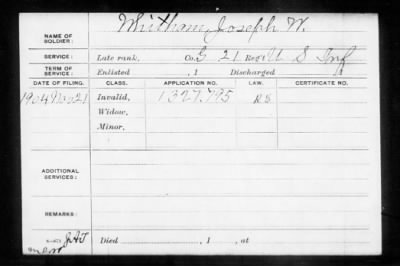 NAME OF SOLDIER: Whitham, Joseph W.
SERVICE: Late rank, Co. G 21 Reg't U S Inf
TERM OF SERVICE: Enlisted , 1 Discharged , 1
DATE OF FILING. CLASS. APPLICATION NO. LAW. CERTIFICATE NO.
1904 Nov 21 Invalid, 1327,795
Widow,
Minor,
ADDITIONAL SERVICES:
REMARKS:
Died , 1 , at